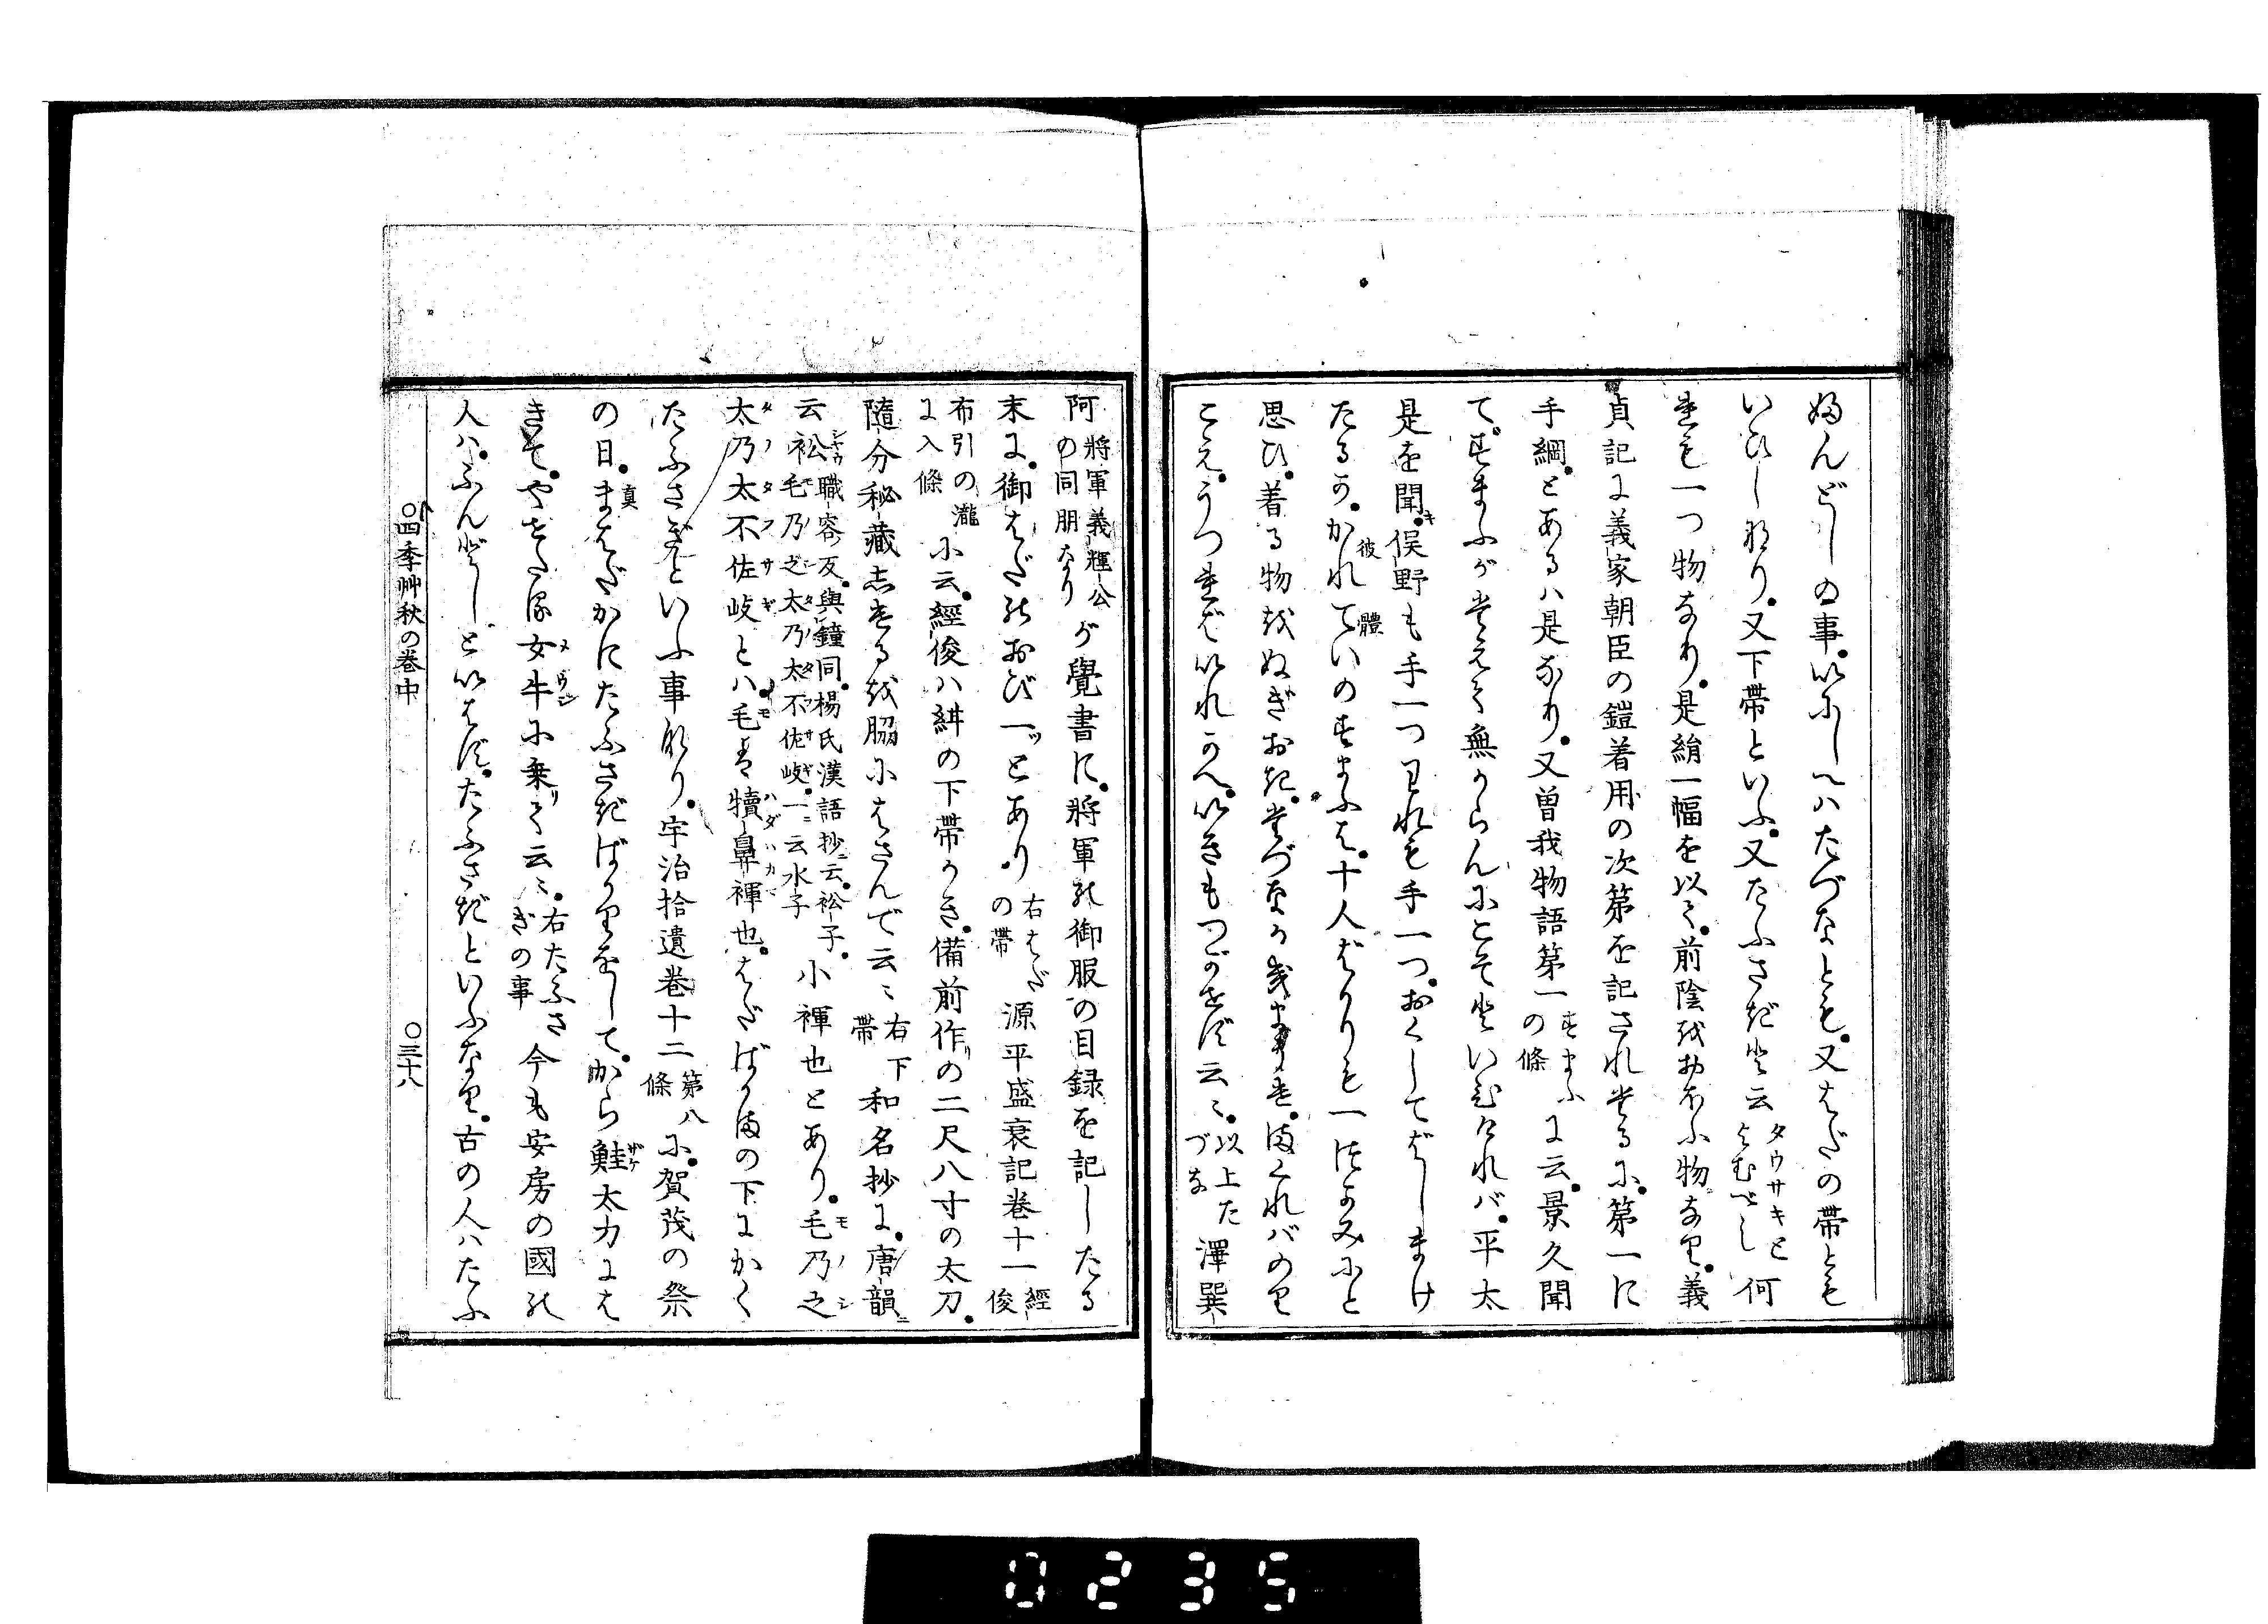 ふんどしの事。いにしへハたづなとも。又はだの帯とも
いひしなり。又下帯といふ。又たふさぎと云タウサキとよむべし何
れも一つ物なり。是絹一幅を以て。前陰をおほふ物なり。義
貞記に義家朝臣の鎧着用の次第を記されたるに。第一に
手綱。とあるハ是なり。又曽我物語第一すまふの條に云。景久聞
て。すまふがたえて無からんにこそといひけれバ。平太
是を聞。俣野も手一つわれも手一つ。おくしてばしまけ
たるか。かれ彼てい體のすまふは。十人ばかりも一つかみにと
思ひ。着る物をぬぎおき。たづなかきまうけ。はくれバのり
こえ。うつればいれかへ。いきもつがせず云々。以上たづな澤巽
阿將軍義輝公の同朋なりが覺書に。將軍の御服の目録を記したる
末に。御はだのおび一ッとあり。右はだの帯源平盛衰記巻十一經俊
布引の瀧に入條に云。經俊ハ絳の下帯かき。備前作りの二尺八寸の太刀。
隨分秘藏しけるを脇にはさんで云々右下帯和名抄に。唐韻ニ
云衳シヤウ職容反。與鐘同。楊氏漢語抄云。衳子。毛乃之太乃太不佐岐。一ニ云水子小褌也とあり。毛乃之
太乃太不佐岐とハ。毛は犢鼻褌ハダハカマ也。はだばかまの下にかく
たふさぎといふ事なり。宇治拾遺巻十二第八條に。賀茂の祭
の日。ま真はだかにたふさぎばかりをして。から鮭ザケ太刀には
きて。やせたる女牛メウシに乗りて云々。右たふさぎの事今も安房の國の
人ハ。ふんどしといはず。たふさぎといふなり。古の人ハたふ
○四季艸秋の巻中　○三十八
0235